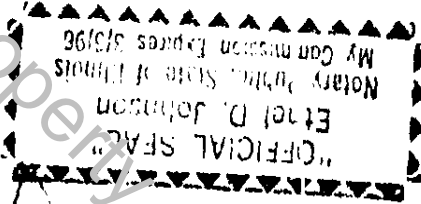 "OFFICIAL SEAL"
Ethel D. Johnson
Notary Public, State of Illinois
My Commission Expires 3/3/96
Property